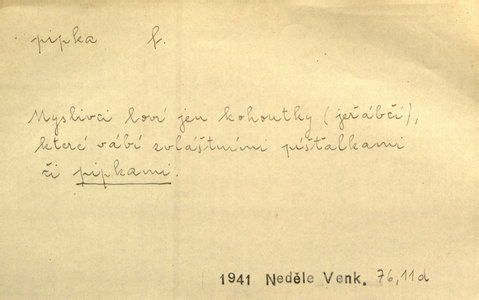 pipka f.
Myslivci loví jen kohoutky (jeřábčí),
které vábí zvláštními píšťalkami
či pipkami.
1941 Neděle Venk. 76,11d